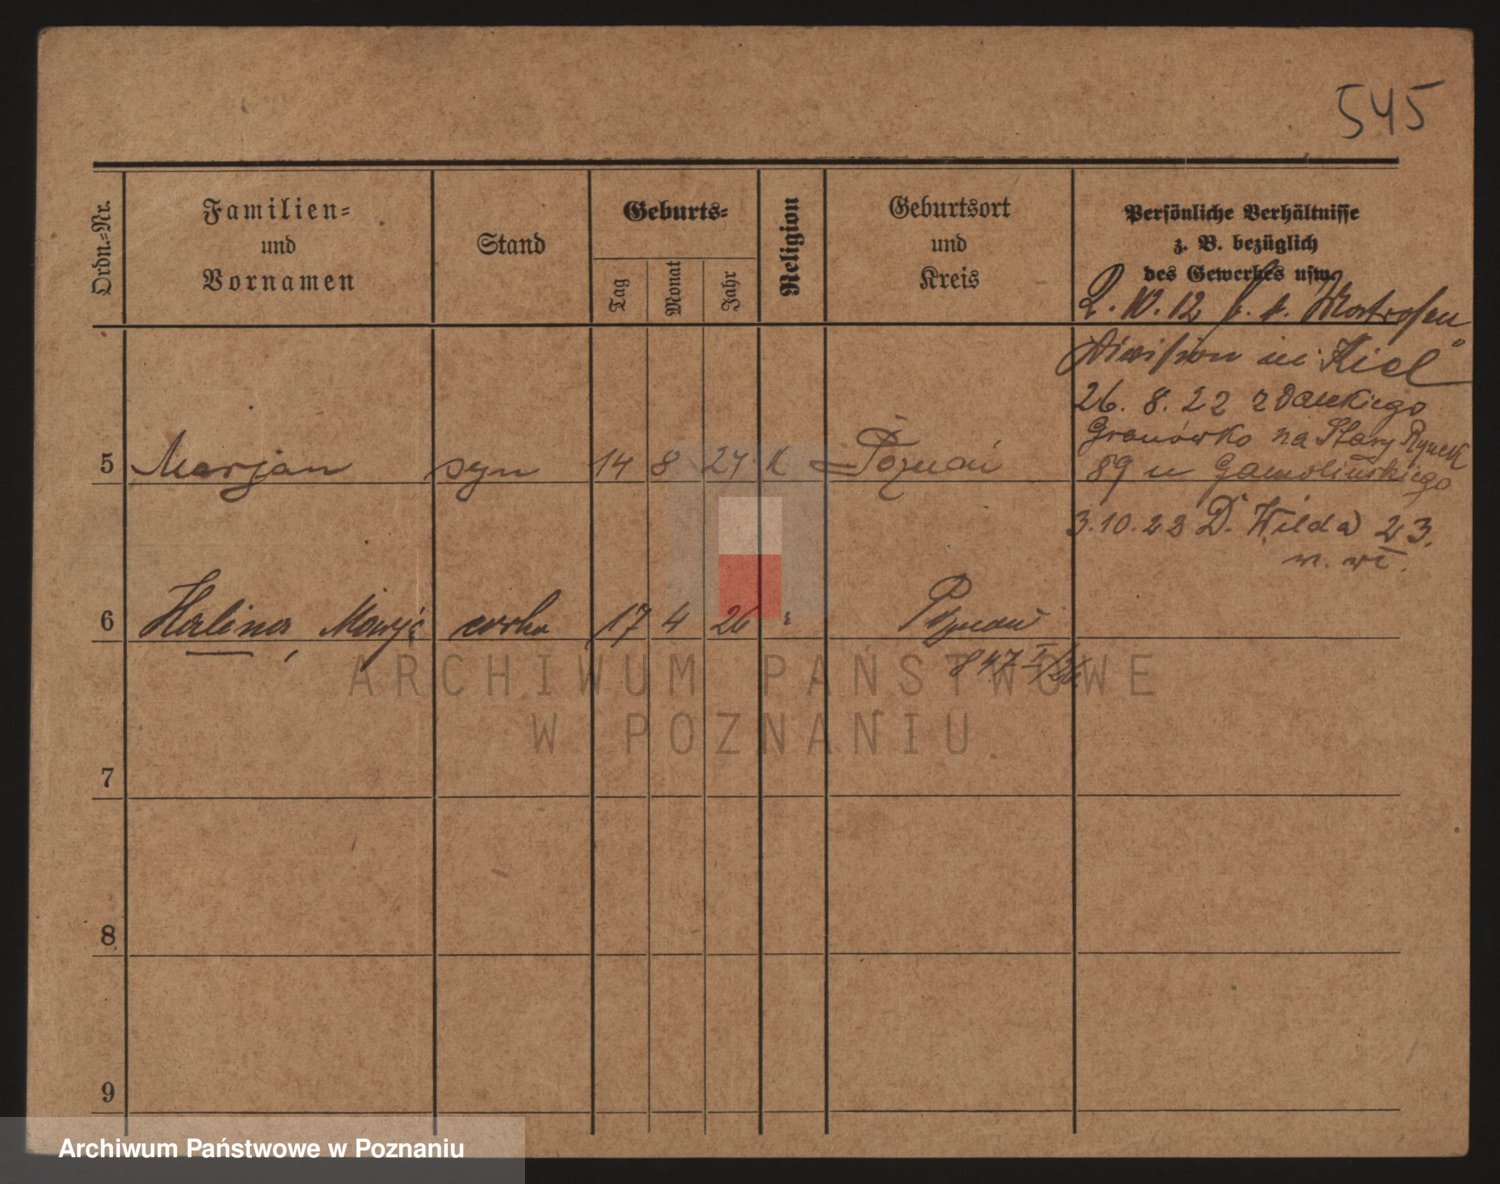 545
Ordn.-Nr.
Familien-
und
Vornamen
Stand
Geburts-
Tag
Monat
Jahr
Religion
Geburtsort
und
Kreis
Persönliche Verhältnisse
z. B. bezüglich
des Gewerbes usw.
2. 10. 12 Matrosen
Division in Kiel
26. 8. 22
Granówko na Stary Rynek
89 u Gamolińskiego
3.10.22 D. Wilda 23.
5 Marjan syn 14 8 24 K Poznań
6 Halina, Marja córka 17 4 26 Poznań
847 I/26
7
8
9
ARCHIWUM PAŃSTWOWE
W POZNANIU
Archiwum Państwowe w Poznaniu